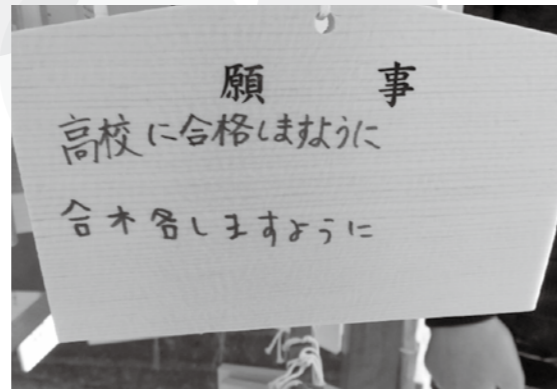 願 事
高校に合格しますように
合格しますように